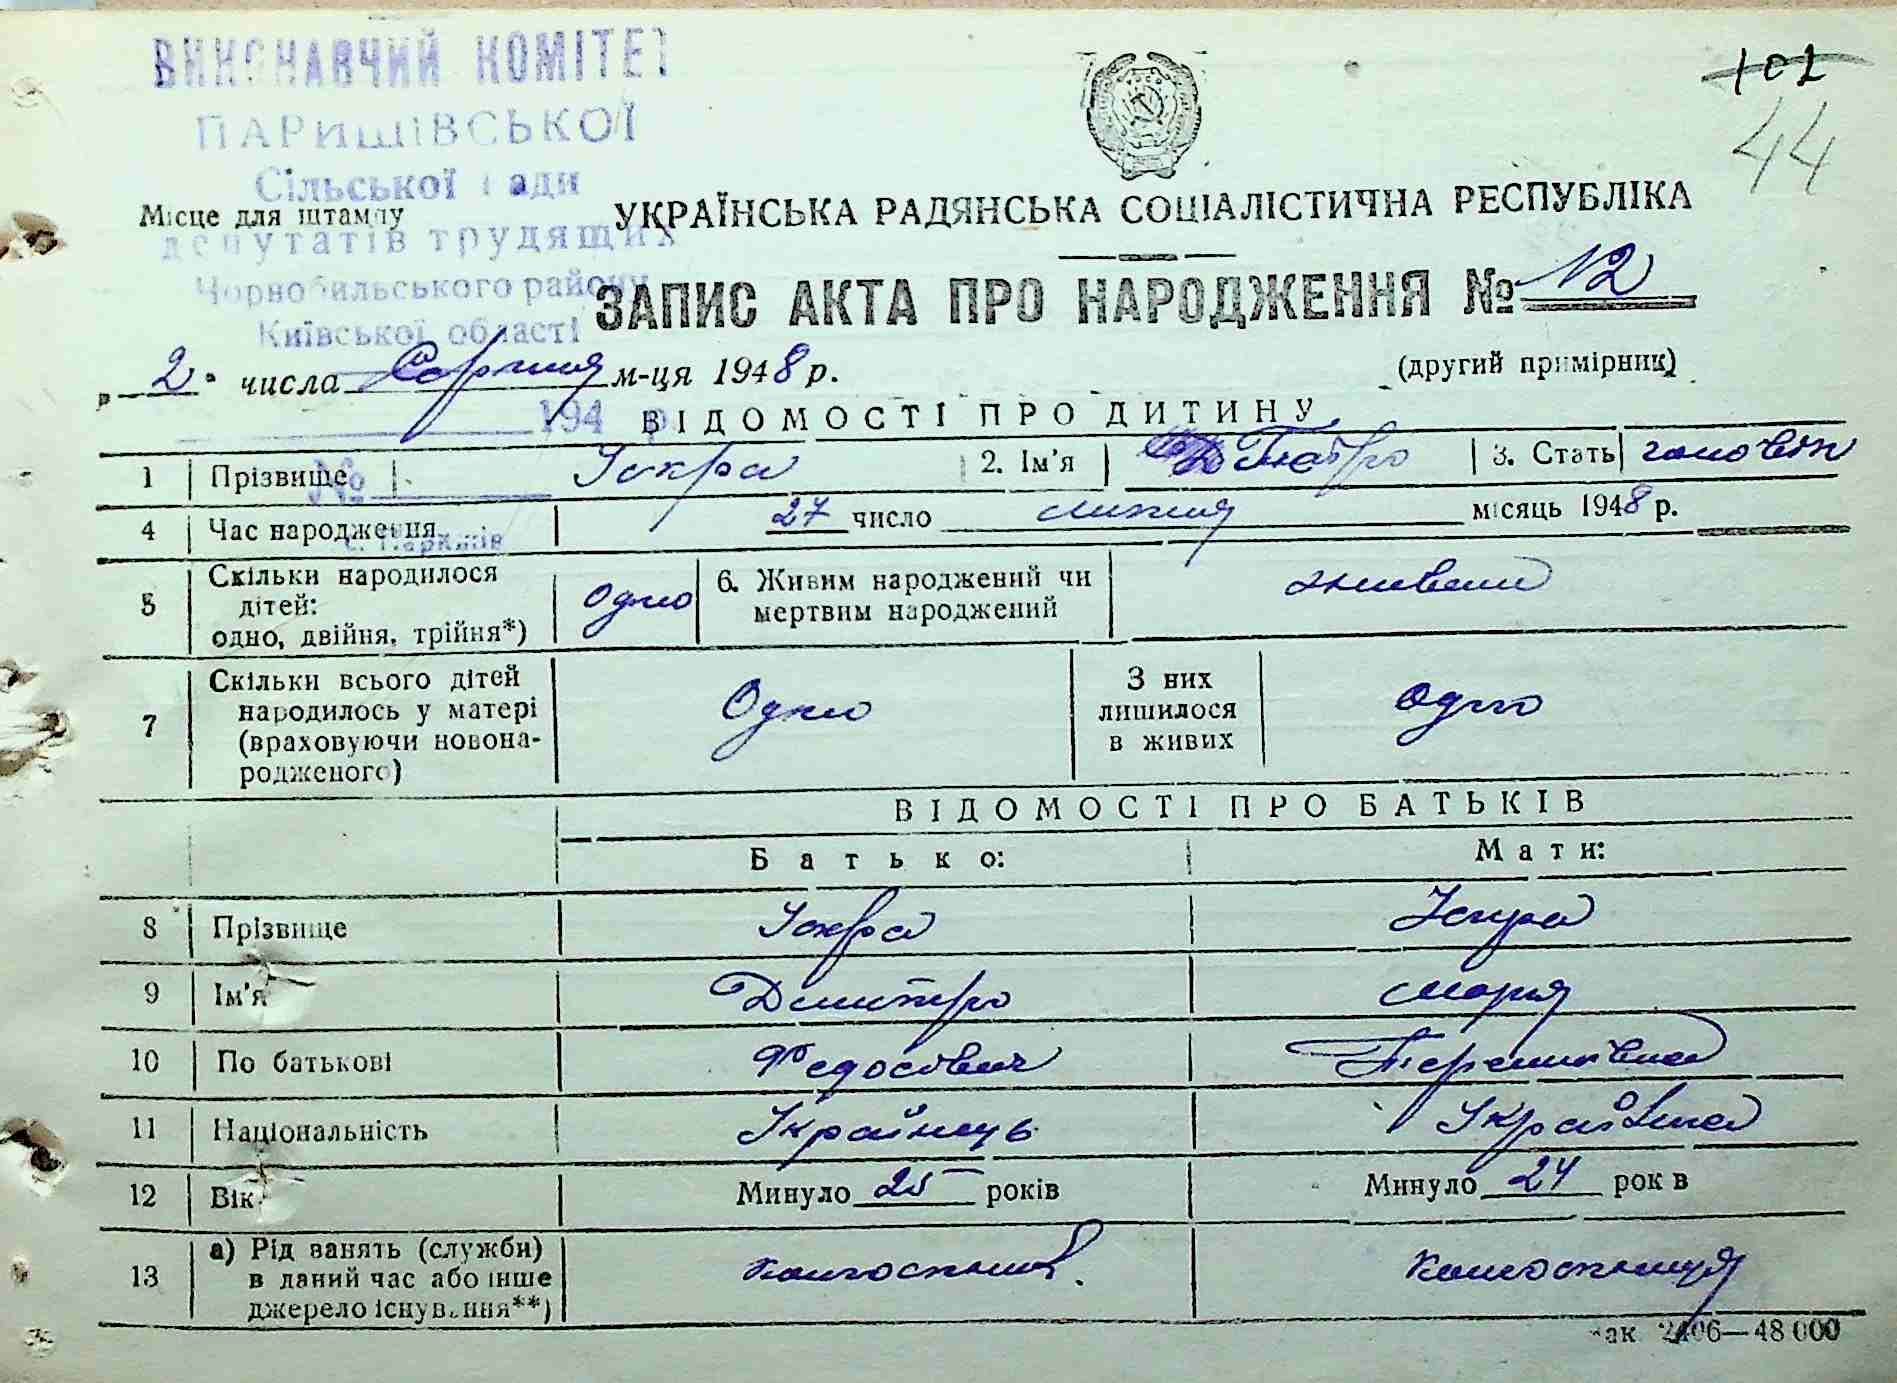 ВИКОНАВЧИЙ КОМІТЕТ
ПАРИШІВСЬКОЇ
Сільської ради
депутатів трудящих
Чорнобильського району
Київської області
194 р.
№
с. Паришів
102
44
Місце для штампу
УКРАЇНСЬКА РАДЯНСЬКА СОЦІАЛІСТИЧНА РЕСПУБЛІКА
ЗАПИС АКТА ПРО НАРОДЖЕННЯ № 12
„2" числа Серпня м-ця 1948 р.
(другий примірник)
ВІДОМОСТІ ПРО ДИТИНУ
1 Прізвище Іскра 2. Ім'я Петро 3. Стать чоловіч
4 Час народження 27 число липня місяць 1948 р.
5 Скільки народилося дітей: одно, двійня, трійня*) Одно 6. Живим народжений чи мертвим народжений живим
7 Скільки всього дітей народилось у матері (враховуючи новонародженого) Одно З них лишилося в живих Одно
ВІДОМОСТІ ПРО БАТЬКІВ
Батько: Мати:
8 Прізвище Іскра Іскра
9 Ім'я Дмитро Марія
10 По батькові Федосович
11 Національність Українець Українка
12 Вік Минуло 25 років Минуло 24 років
13 а) Рід занять (служби) в даний час або інше джерело існування**) колгоспник. колгоспниця
Зак 2406—48 000